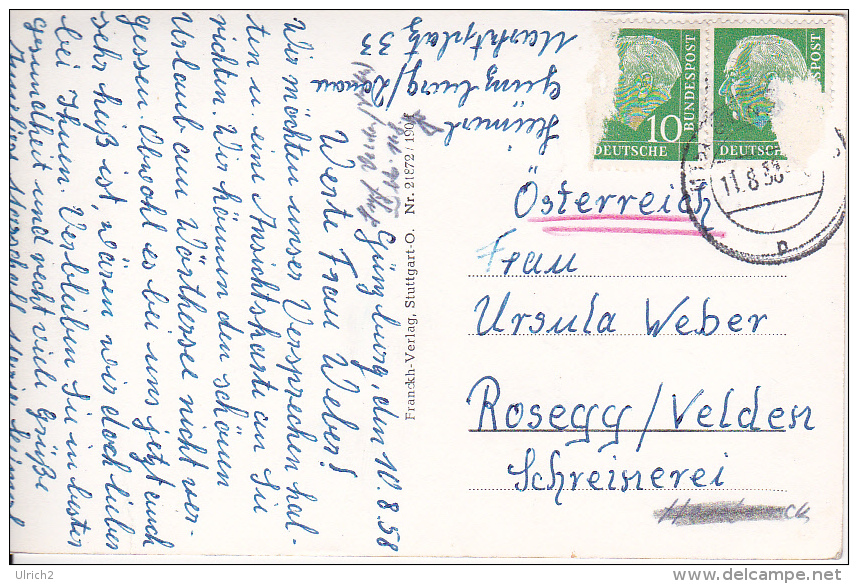 Günzburg, den 10.8.58
Werte Frau Weber!
Wir möchten unser Versprechen hal-
ten u. eine Ansichtskarte an Sie
richten. Wir können den schönen
Urlaub am Wörthersee nicht ver-
gessen. Obwohl es bei uns jetzt auch
sehr heiß ist, wären wir doch lieber
bei Ihnen. Verbleiben Sie in bester
Gesundheit und recht viele Grüße
Heimerl
Günzburg/Donau
Marktplatz 33
Franckh-Verlag, Stuttgart-O. Nr. 21872/190
10
DEUTSCHE
BUNDESPOST
DEUTSCHE
POST
11.8.58
Österreich
Frau
Ursula Weber
Rosegg/Velden
Schreinerei
Ulrich2
delcampe.net